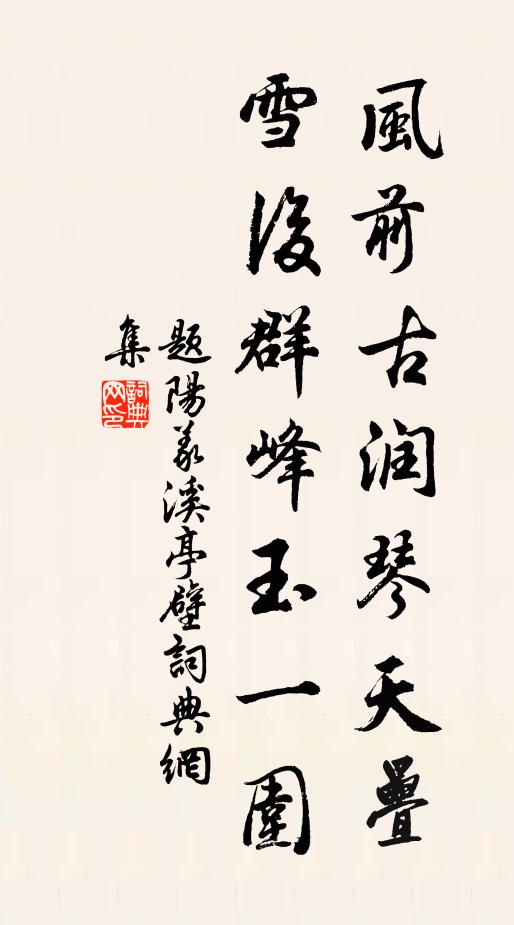 風前古潤琴天疊
雪後群峰玉一圍
題陽羨溪亭壁詞典網
集
詞典網印